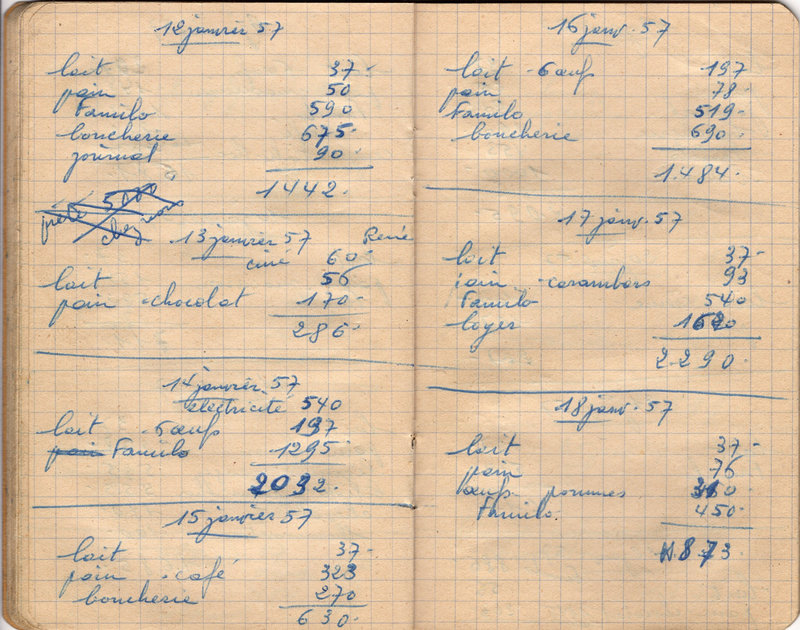 12 janvier 57
lait 37.
pain 50
Familo 590
boucherie 675.
journal 90.
1442.
prêté 5000
chez nous
13 janvier 57 René
ciné 60.
lait 56
pain - chocolat 170.
286.
14 janvier 57
électricité 540
lait - 6 œufs 197
pain Familo 1295
2032.
15 janvier 57
lait 37.
pain - café 323
boucherie 270
630.
16 janv. 57
lait - 6 œufs 197
pain 78.
Familo 519.
boucherie 690.
1.484.
17 janv. 57
lait 37.
pain - carambars 93
Familo 540
loyer 1620
2290.
18 janv. 57
lait 37.
pain 76
œufs pommes 310
Familo. 450.
873.